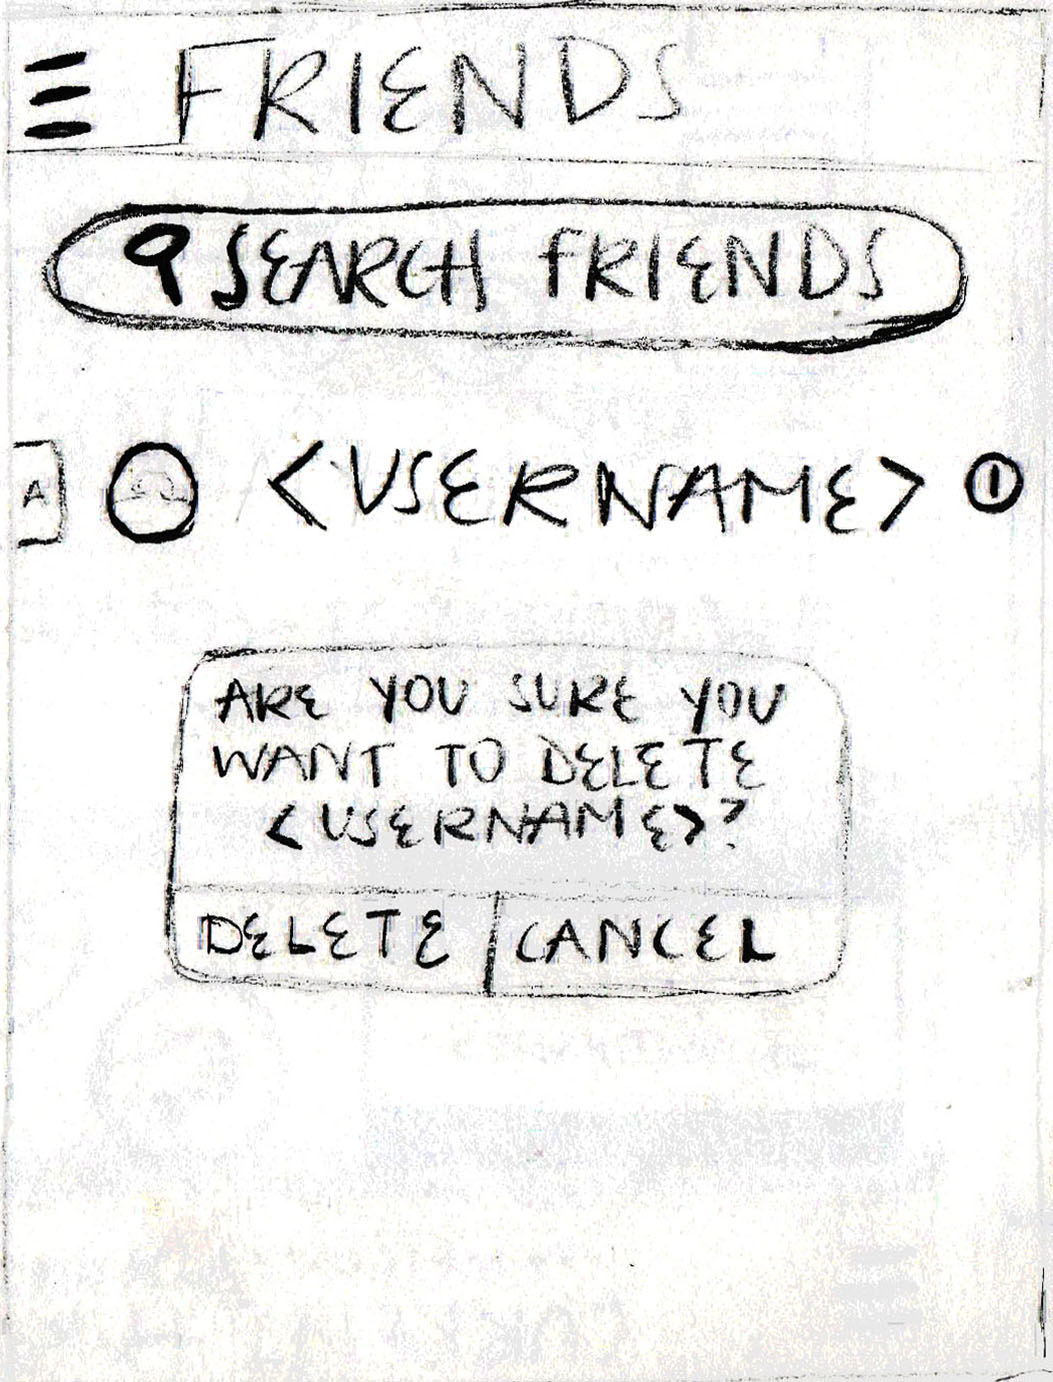 FRIENDS
SEARCH FRIENDS
A <USERNAME>
ARE YOU SURE YOU
WANT TO DELETE
<USERNAME>?
DELETE CANCEL